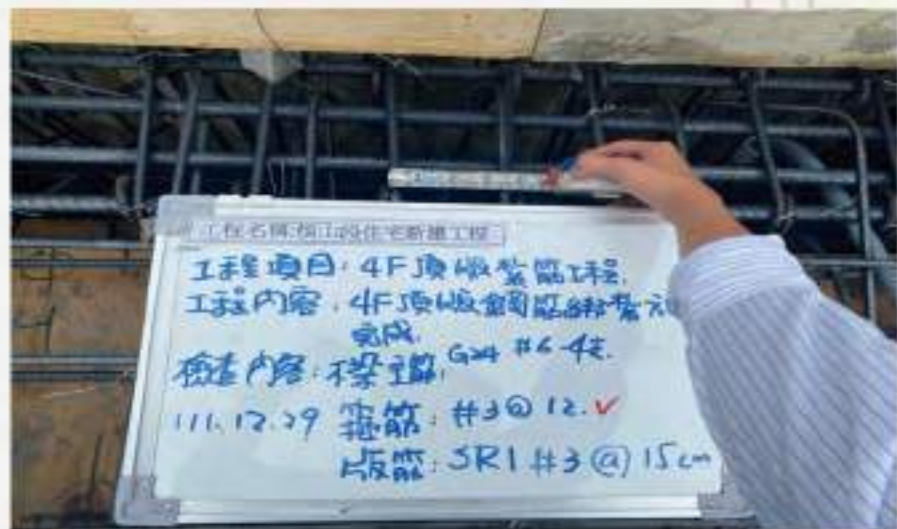 工程名稱:橫山段住宅新建工程
工程項目:4F頂版紮筋工程.
工程內容:4F頂版鋼筋綁紮
完成.
檢查內容:梁主筋, G24 #6-4支.
111.12.29 箍筋:#3@12.✓
版筋:SR1 #3@15cm